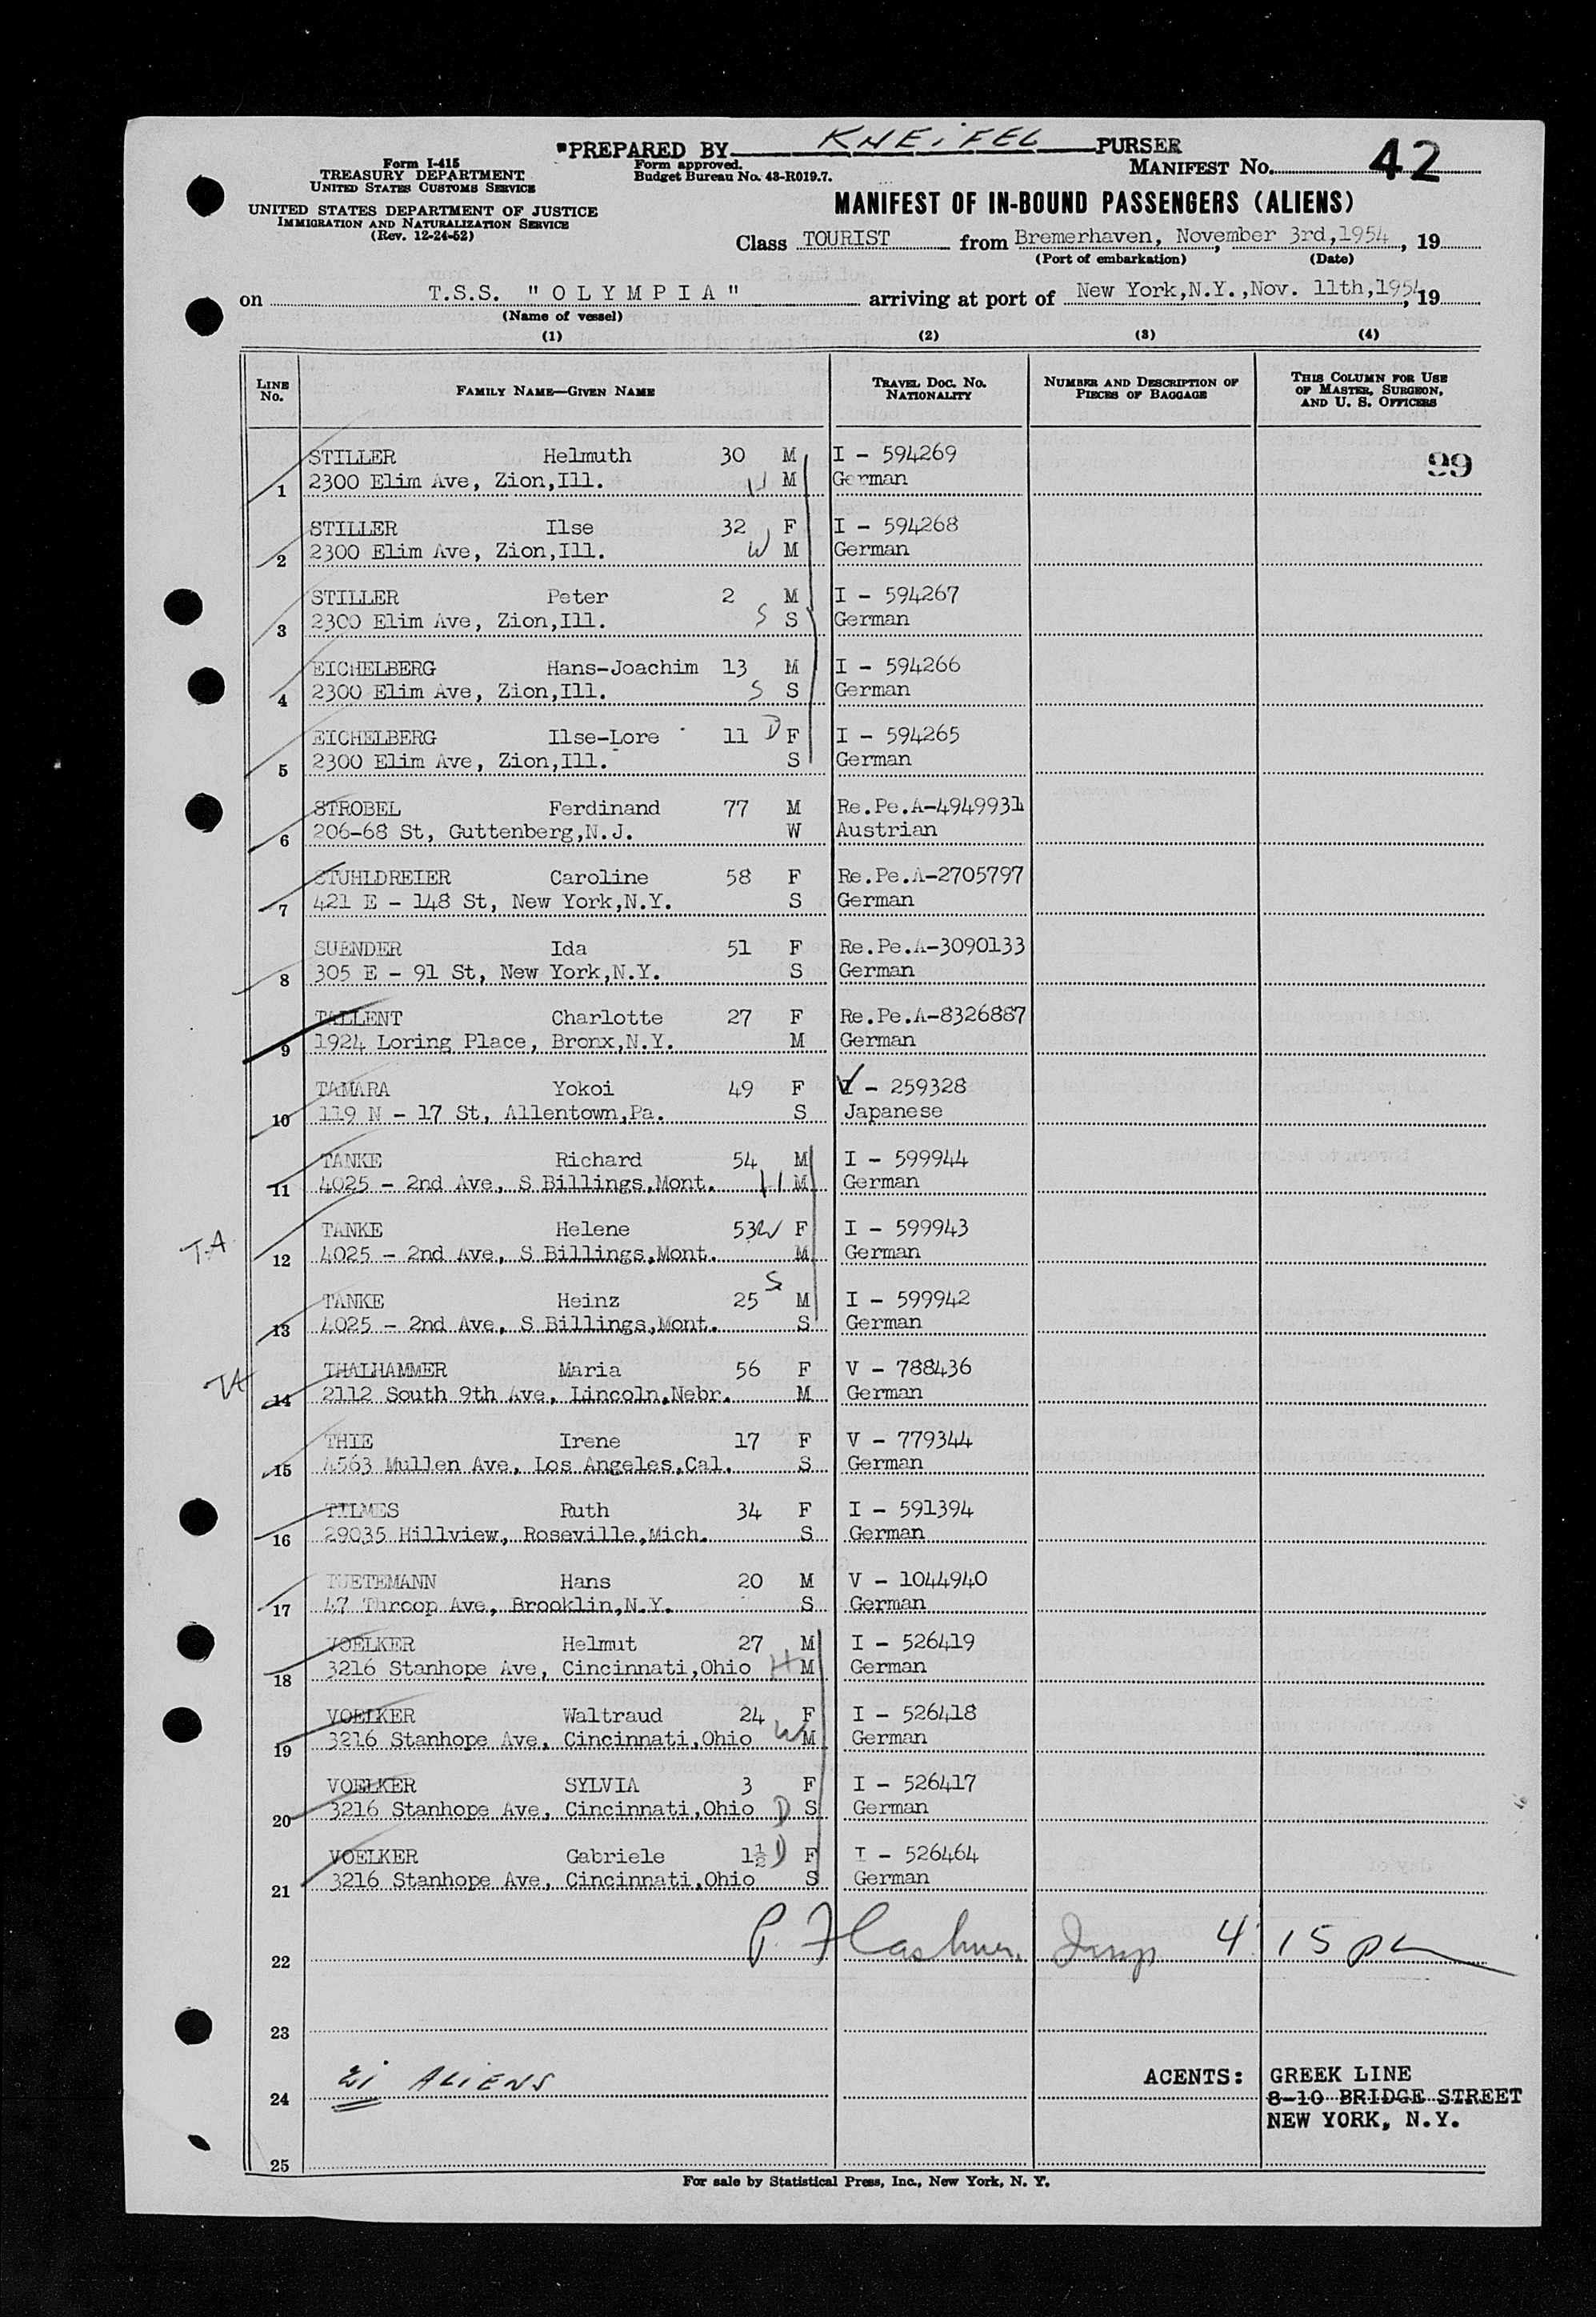 "PREPARED BY KNEIFEL PURSER
Form I-415
TREASURY DEPARTMENT
UNITED STATES CUSTOMS SERVICE
Form approved.
Budget Bureau No. 43-R019.7.
MANIFEST No. 42
UNITED STATES DEPARTMENT OF JUSTICE
IMMIGRATION AND NATURALIZATION SERVICE
(Rev. 12-24-52)
MANIFEST OF IN-BOUND PASSENGERS (ALIENS)
Class TOURIST from Bremerhaven, November 3rd,1954, 19
(Port of embarkation) (Date)
on T.S.S. "OLYMPIA" arriving at port of New York,N.Y.,Nov. 11th,1954, 19
(Name of vessel)
(1) (2) (3) (4)
LINE No. FAMILY NAME—GIVEN NAME TRAVEL DOC. NO. NATIONALITY NUMBER AND DESCRIPTION OF PIECES OF BAGGAGE THIS COLUMN FOR USE OF MASTER, SURGEON, AND U. S. OFFICERS
STILLER Helmuth 30 M I - 594269 99
1 2300 Elim Ave, Zion,Ill. M German
STILLER Ilse 32 F I - 594268
2 2300 Elim Ave, Zion,Ill. W M German
STILLER Peter 2 M I - 594267
3 2300 Elim Ave, Zion,Ill. S S German
EICHELBERG Hans-Joachim 13 M I - 594266
4 2300 Elim Ave, Zion,Ill. S S German
EICHELBERG Ilse-Lore 11 D F I - 594265
5 2300 Elim Ave, Zion,Ill. S German
STROBEL Ferdinand 77 M Re.Pe.A-4949931
6 206-68 St, Guttenberg,N.J. W Austrian
STUHLDREIER Caroline 58 F Re.Pe.A-2705797
7 421 E - 148 St, New York,N.Y. S German
SUENDER Ida 51 F Re.Pe.A-3090133
8 305 E - 91 St, New York,N.Y. S German
TALLENT Charlotte 27 F Re.Pe.A-8326887
9 1924 Loring Place, Bronx,N.Y. M German
TAMARA Yokoi 49 F I - 259328
10 119 N - 17 St, Allentown,Pa. S Japanese
TANKE Richard 54 M I - 599944
11 4025 - 2nd Ave, S Billings,Mont. H M German
T.A.
TANKE Helene 53 W F I - 599943
12 4025 - 2nd Ave, S Billings,Mont. M German
TANKE Heinz 25 S M I - 599942
13 4025 - 2nd Ave, S Billings,Mont. S German
TA
THALHAMMER Maria 56 F V - 788436
14 2112 South 9th Ave, Lincoln,Nebr. M German
THIE Irene 17 F V - 779344
15 4563 Mullen Ave, Los Angeles,Cal. S German
TILMES Ruth 34 F I - 591394
16 29035 Hillview, Roseville,Mich. S German
TUETEMANN Hans 20 M V - 1044940
17 47 Throop Ave, Brooklin,N.Y. S German
VOELKER Helmut 27 M I - 526419
18 3216 Stanhope Ave, Cincinnati,Ohio H M German
VOELKER Waltraud 24 F I - 526418
19 3216 Stanhope Ave, Cincinnati,Ohio W M German
VOELKER SYLVIA 3 F I - 526417
20 3216 Stanhope Ave, Cincinnati,Ohio D S German
VOELKER Gabriele 1½ D F I - 526464
21 3216 Stanhope Ave, Cincinnati,Ohio S German
22 P. Insp 4 15
23
24 21 ALIENS
ACENTS: GREEK LINE
8-10 BRIDGE STREET
NEW YORK, N.Y.
25
For sale by Statistical Press, Inc., New York, N. Y.